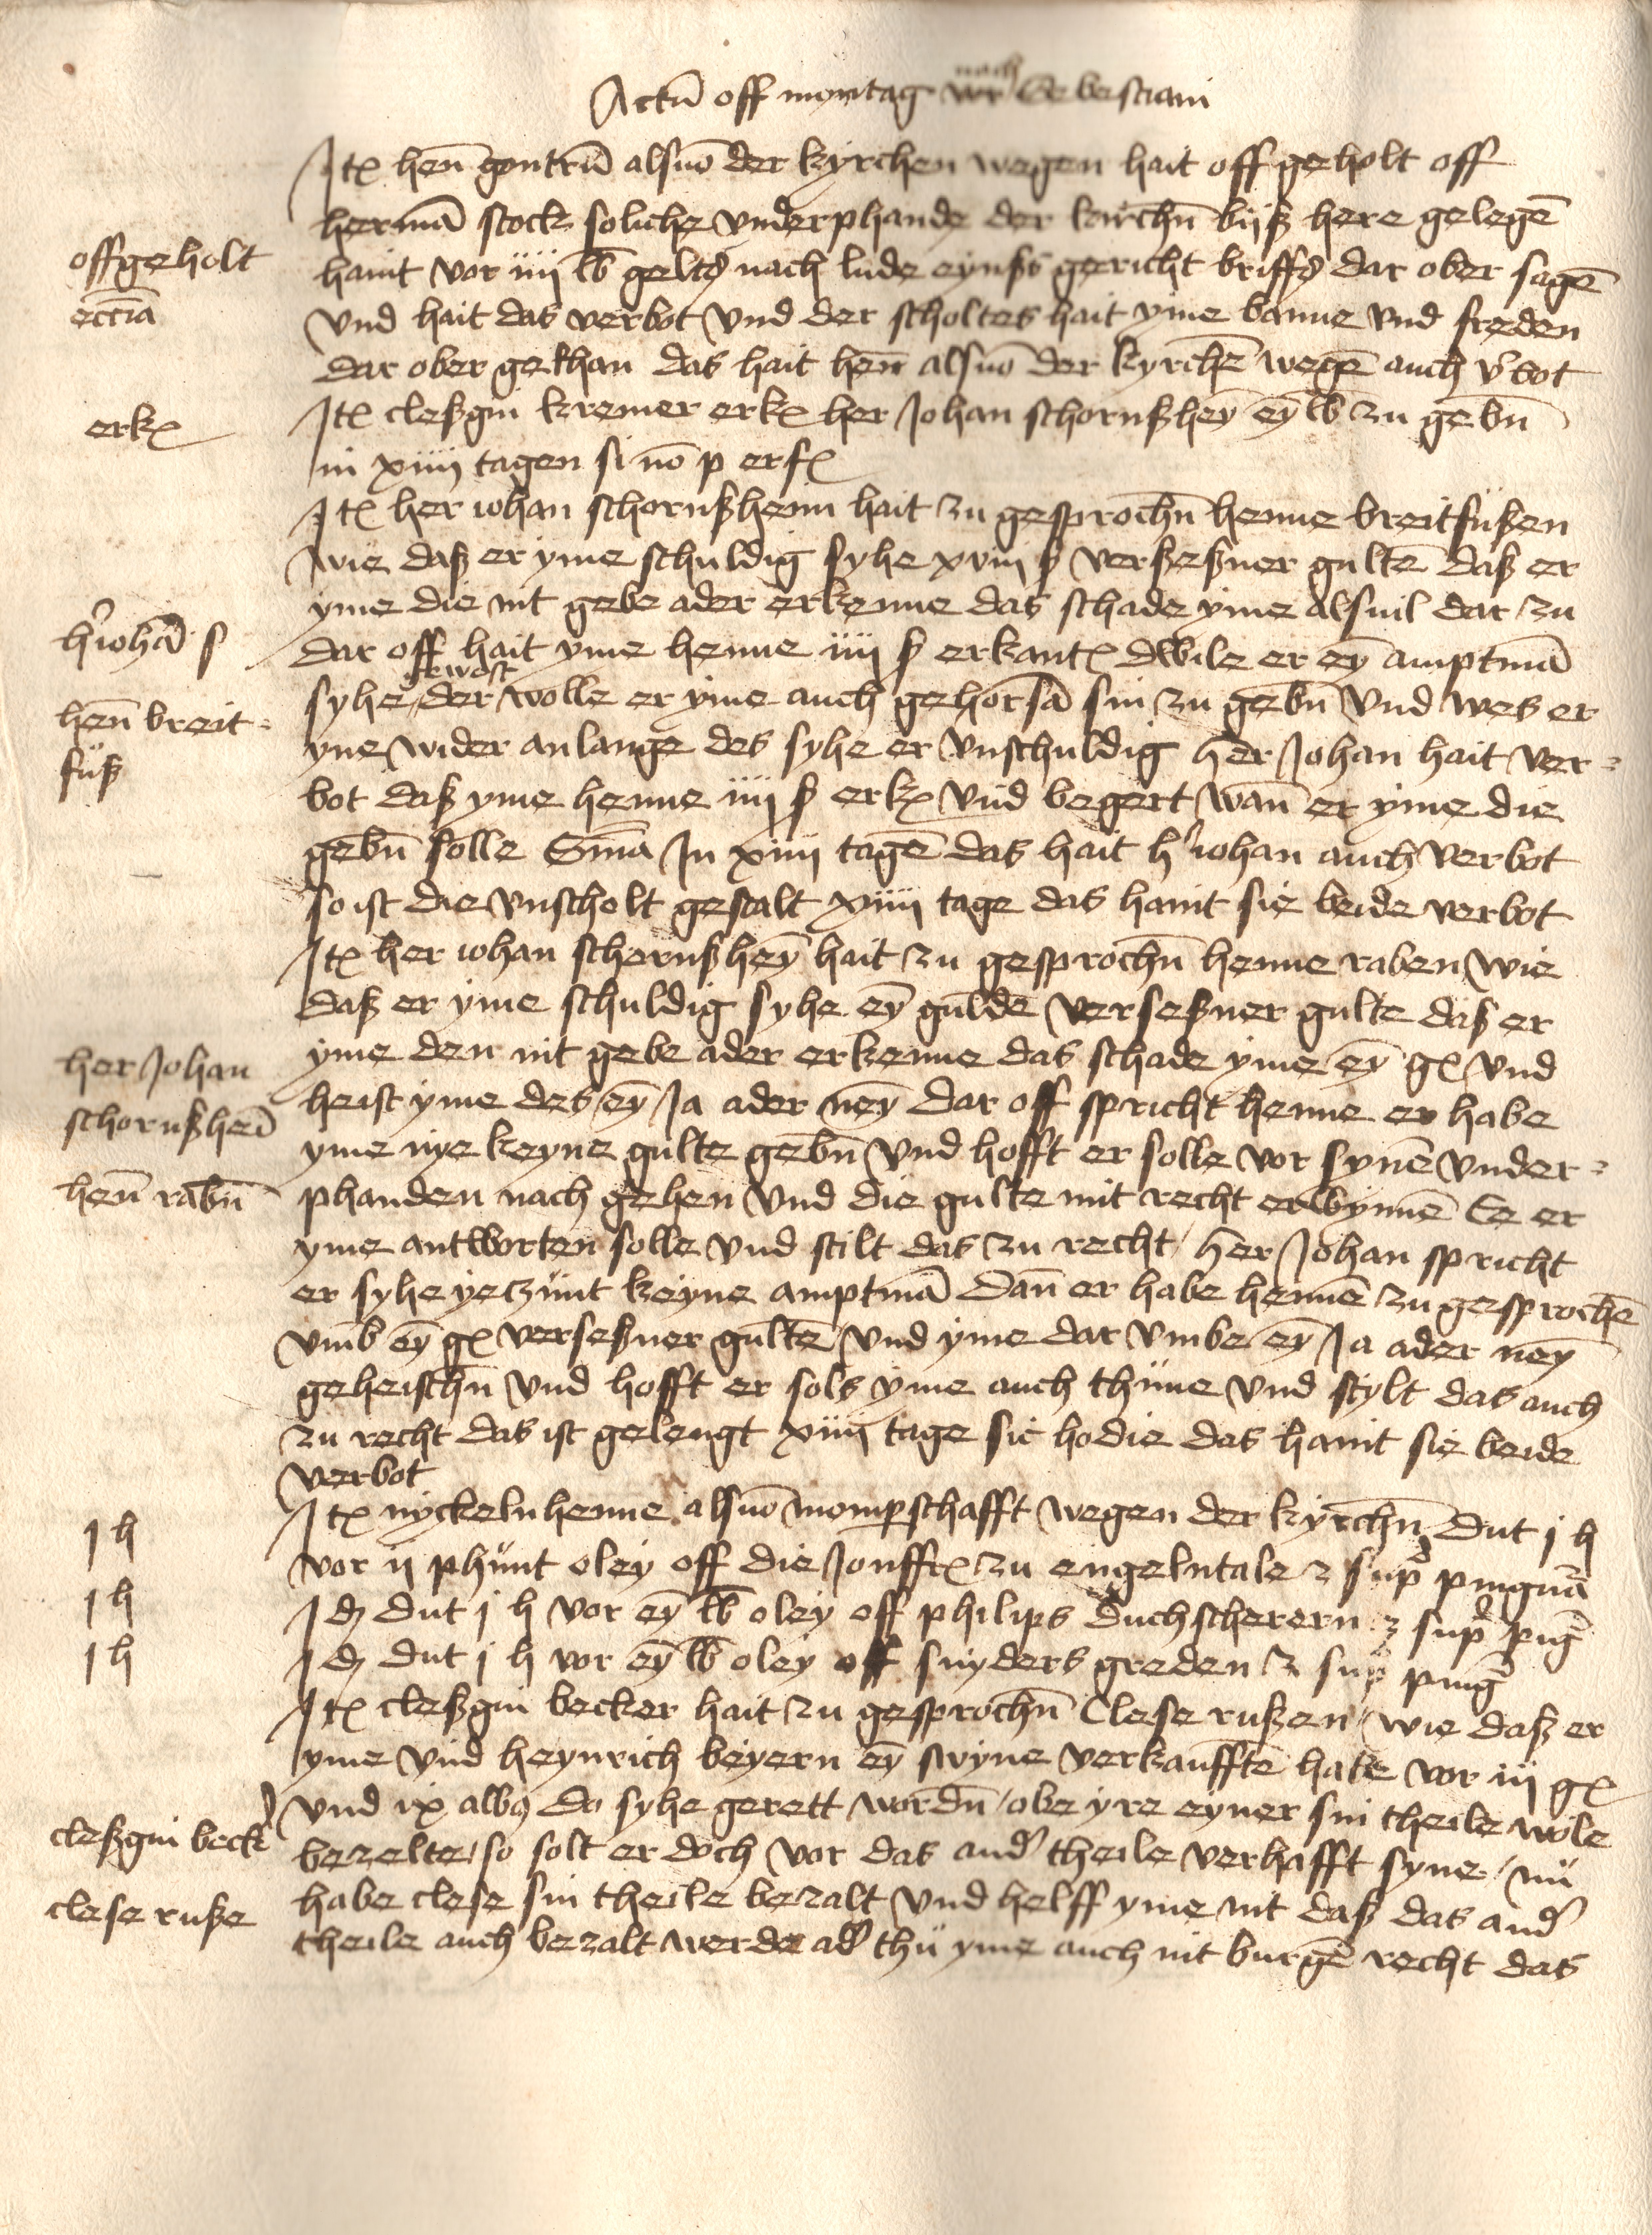 Actū off montag nach Sebestiani
Itꝭ henn gontrū alsuō der kÿrchen wegen hait off geholt off
hermā stock soliche vnderphande der kirchn̄ bijß here gelegē
offgeholt
haint vor iiij lb geltꝭ nach lude eynß gericht briffꝭ dar ober sagē
ecc̄ia
vnd hait das verbot vnd der scholtes hait yme banne vnd freden
dar ober gethan das hait hen̄ alsuō der kyrchē wegē auch v̾bot
erkꝭ
Itꝭ cleßgin kremer erkꝭ her Johan schornßhey̅ ey̅ lb zu gebn̄
in xiiij tagen si nō p erfꝭ
Itꝭ her iohan schornßheim hait zu gesprochn̄ henne breitfüßen
wie daß er yme schuldig syhe xviij ß verseßner gultē daß er
yme die nit gebe ader erkenne das schade yme alsuil dar zu
h̾ iohā s
dar off hait yme henne iiij ß erkantꝭ dwile er ey̅ amptmā
gewost
syhe der wolle er yme auch gehorsā sin zu gebn̄ vnd wes er
hen̄ breit-
yne wider anlange des syhe er vnschuldig her Johan hait ver-
füß
bot daß yme henne iiij ß erkꝭ vnd begert wan̄ er yme die
gebn̄ solle Sm̄a In xiiij tagē das hait h̾ iohan auch verbot
so ist die vnscholt gestalt xiiij tage das haint sie beide verbot
Itꝭ her iohan schornßhey̅ hait zu gesprochn̄ henne raben wie
daß er yme schuldig syhe ey̅ guldē verseßner gulte daß er
her Johan
yme den nit gebe ader erkenne das schade yme ey̅ gꝭ vnd
schornßhei̅
heist yme des ey̅ Ja ader ney̅ dar off spricht henne er habe
yme nye keyne gulte gebn̄ vnd hofft er solle vor synē vnder-
hen̄ rabn̄
phanden nach gehen vnd die gulte mit recht erwynnē Ee er
yme antworten solle vnd stilt das zu recht her Johan spricht
er syhe yeczünt keyne amptmā dan̄ er habe hennē zu gesprochē
vmb ey̅ gꝭ verseßner gultē vnd yme dar vmbe ey̅ Ja ader ney̅
geheischn̄ vnd hofft er sols yme auch thüne vnd stylt das auch
zu recht das ist gelengt xiiij tage sic hodie das haint sie beide
verbot
Itꝭ nyckeln henne alsuō momperschafft wegen der kÿrchn̄ dut j h
j h
vor ij phünt oley off die Jonffrꝭ zu engelntale z sup̾ pinguā
j h
Idꝫ dut j h vor ey̅ lb oley off philips duchscherern z sup̾ ping̅
j h
Idꝫ dut j h vor ey̅ lb oley off snyders greden z sup̾ ping̅
Itꝭ cleßgin becker hait zu gesprochn̄ Clese rußen wie daß er
yme vnd heynrich beyern ey̅ swyne verkaufftē habe vor iij gꝭ
vnd ix albꝰ do syhe gerett wordn̄ obe yre eyner sin theile wole
cleßgin beck̾
bezelte so solt er doch vor das and̾ theile verhafft syne nü
clese ruße
habe clese sin theile bezalt vnd helff yme nit daß das and̾
theile auch bezalt werde ad̾ thü yme auch nit burgē recht das